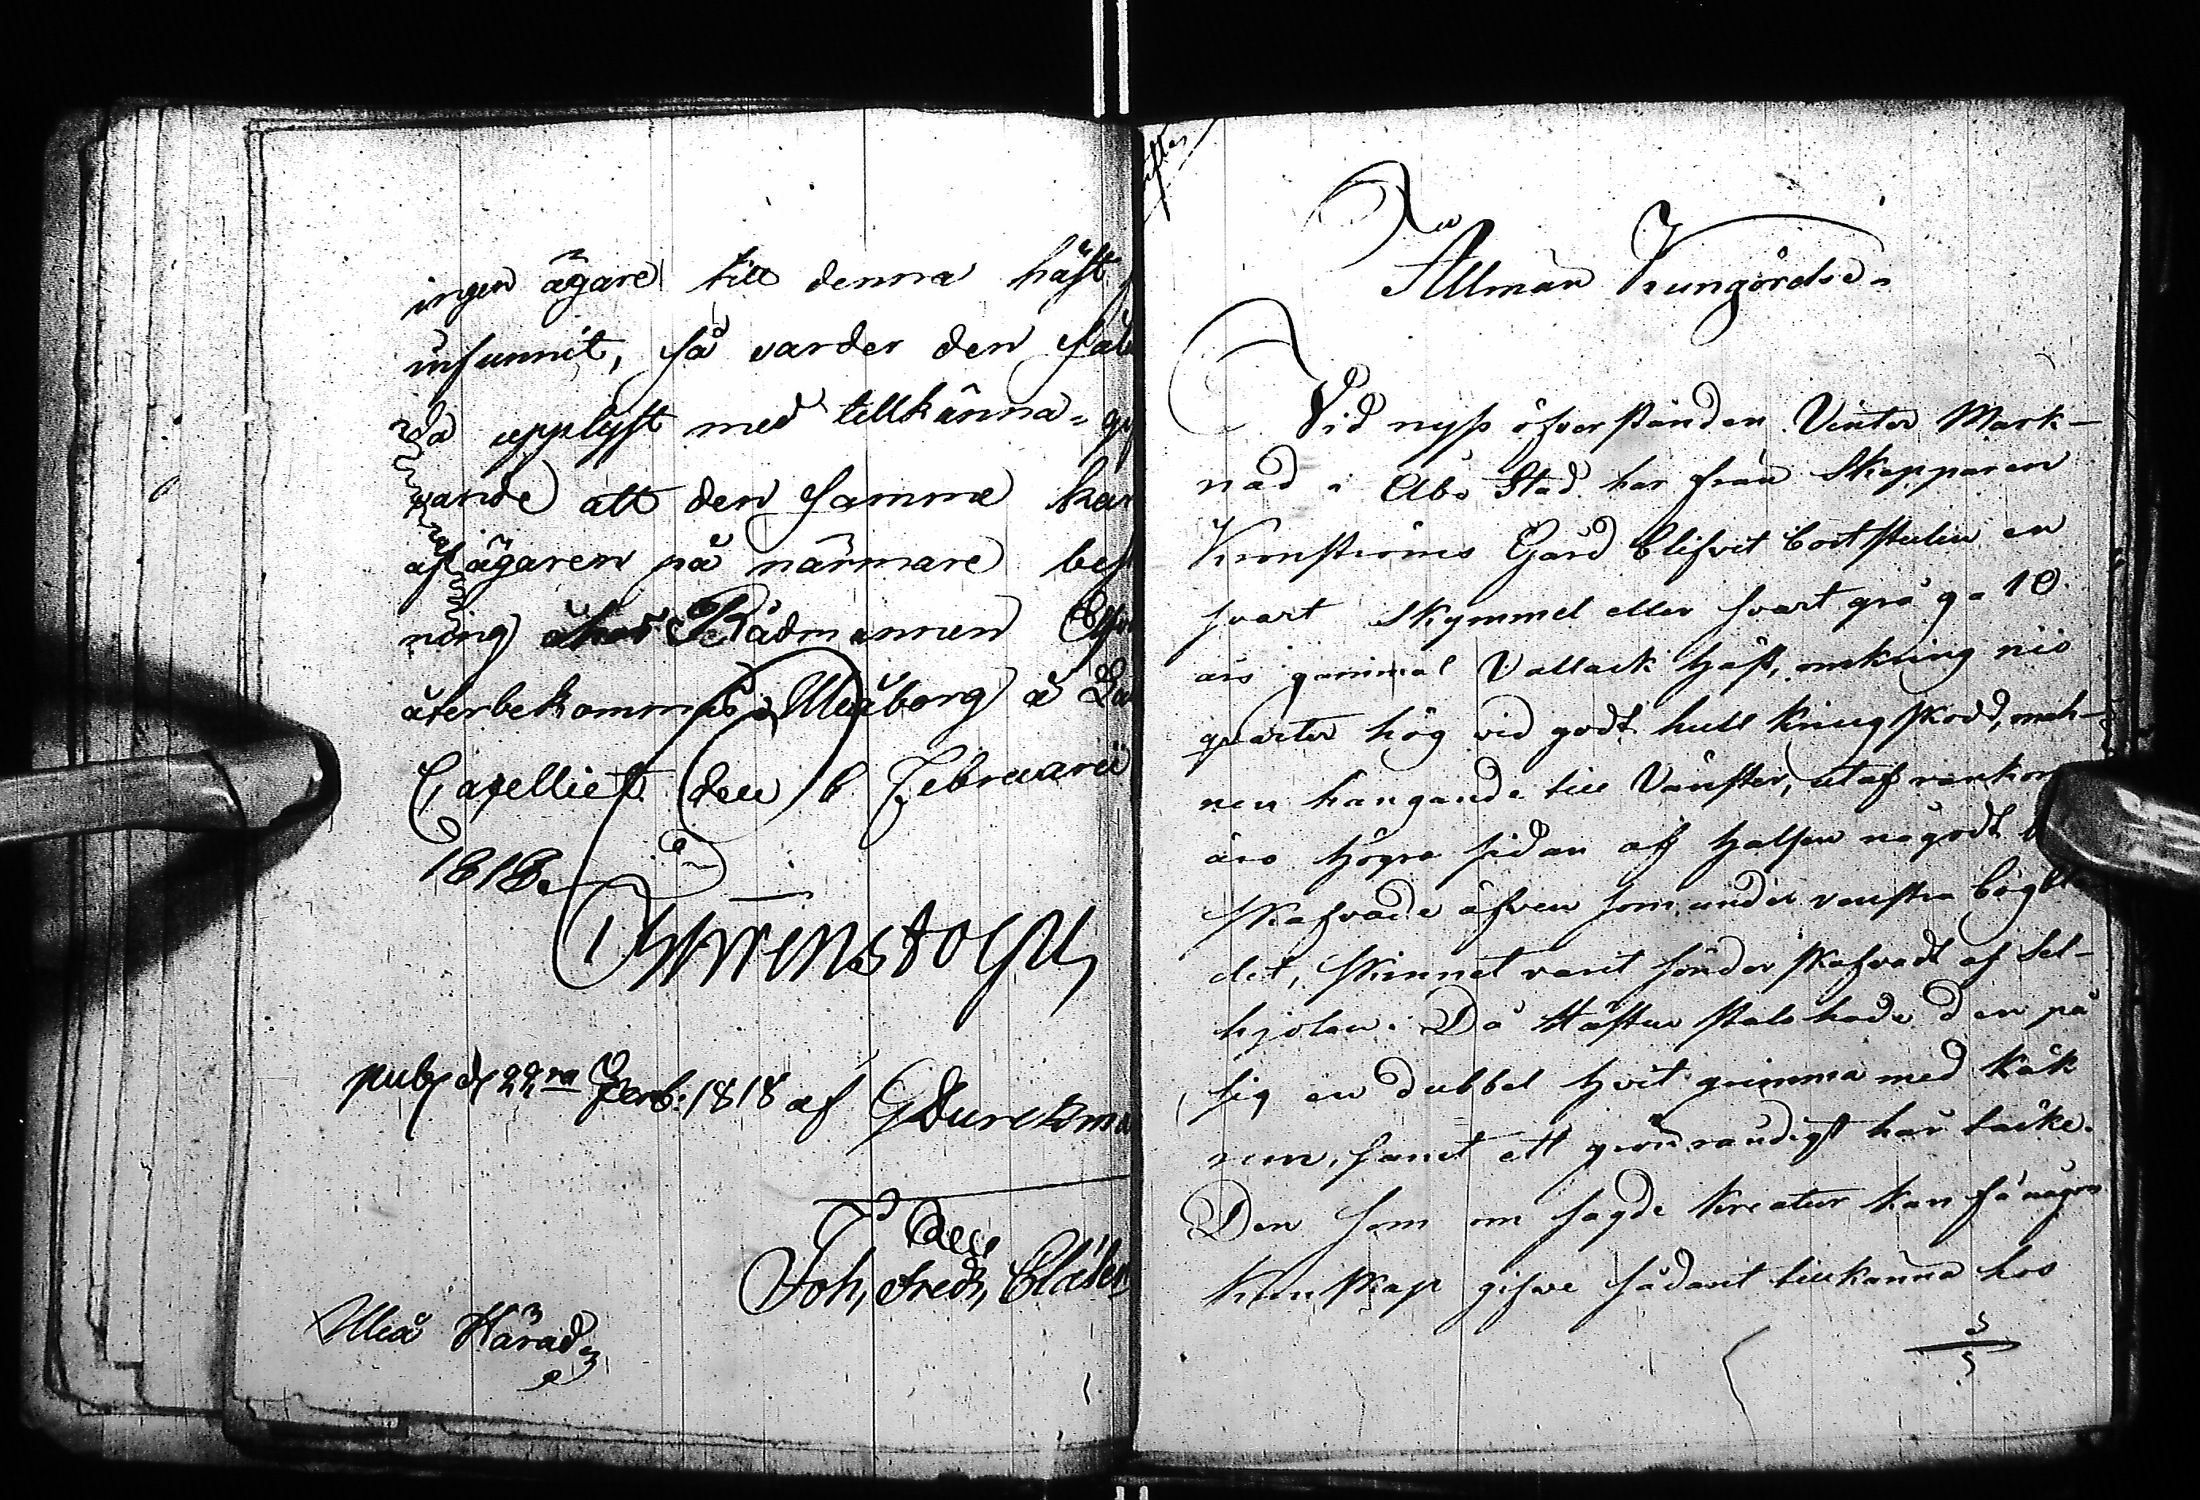 ingen ägare till denna häst
infunnit, så varder den såle
da upplyst med tillkänna-gif
vande att den samma kan
af ägaren på närmare bes
ning hos Rådmannen
återbekommas i Uleåborg å La
Cancelliet den 6 Februarii
1818.
publ d 22ra Febr: 1818 af G Durchman
Joh, Fred,
Uleå Härad
Allmän Kungörelse
Vid nyss öfverståndin Vinter Mark-
nad i Åbo Stad har från Skepparen
Kronströms Gård blifvit bortstulin en
svart skymmel eller svart grå ga 10
års gammal Vallack häst, omkring nio
qvarter hög vid godt hull kringskodd, mah-
nen hangande till Vänster, utaf rankor
äro högra sidan af halsen någodt
skafvade äfven som under venstra bogbla
det, skinnet varit sönder skafvadt af Sel-
bjolen. Då Hästen stals hade den på
sig en dubbel hvit grimma med Käk
rem, samt ett grönrandigt hår täcke.
Den som om sagde kreatur kan få någon
kunskap gifve sådant tillkänna hos